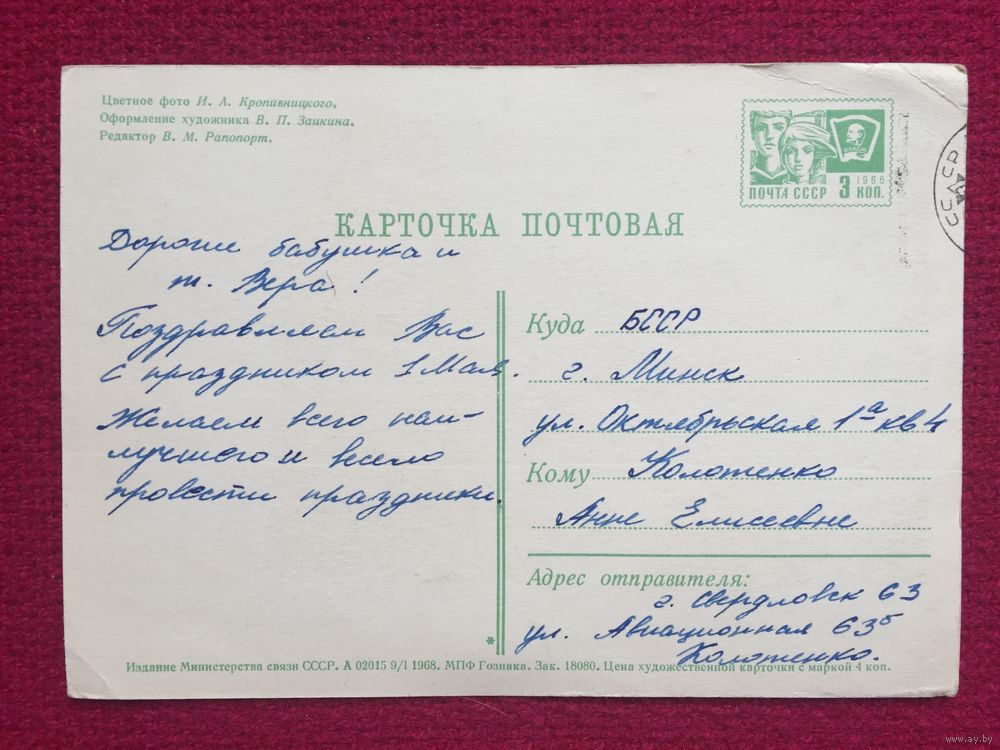 Цветное фото И. А. Кропивницкого.
Оформление художника В. П. Заикина.
Редактор В. М. Рапопорт.
ВЛКСМ
1966
ПОЧТА СССР 3 КОП.
СССР
КАРТОЧКА ПОЧТОВАЯ
Дорогие бабушка и
т. Вера!
Поздравляем Вас
с праздником 1 Мая.
Желаем всего наи-
лучшего и весело
провести праздники.
Куда БССР
г. Минск
ул. Октябрьская 1а кв 4
Кому Колотенко
Анне Елисеевне
Адрес отправителя:
г. Свердловск 63
ул. Авиационная 63б
Колотенко.
*
Издание Министерства связи СССР. А 02015 9/I 1968. МПФ Гознака. Зак. 18080. Цена художественной карточки с маркой 4 коп.
www.ay.by